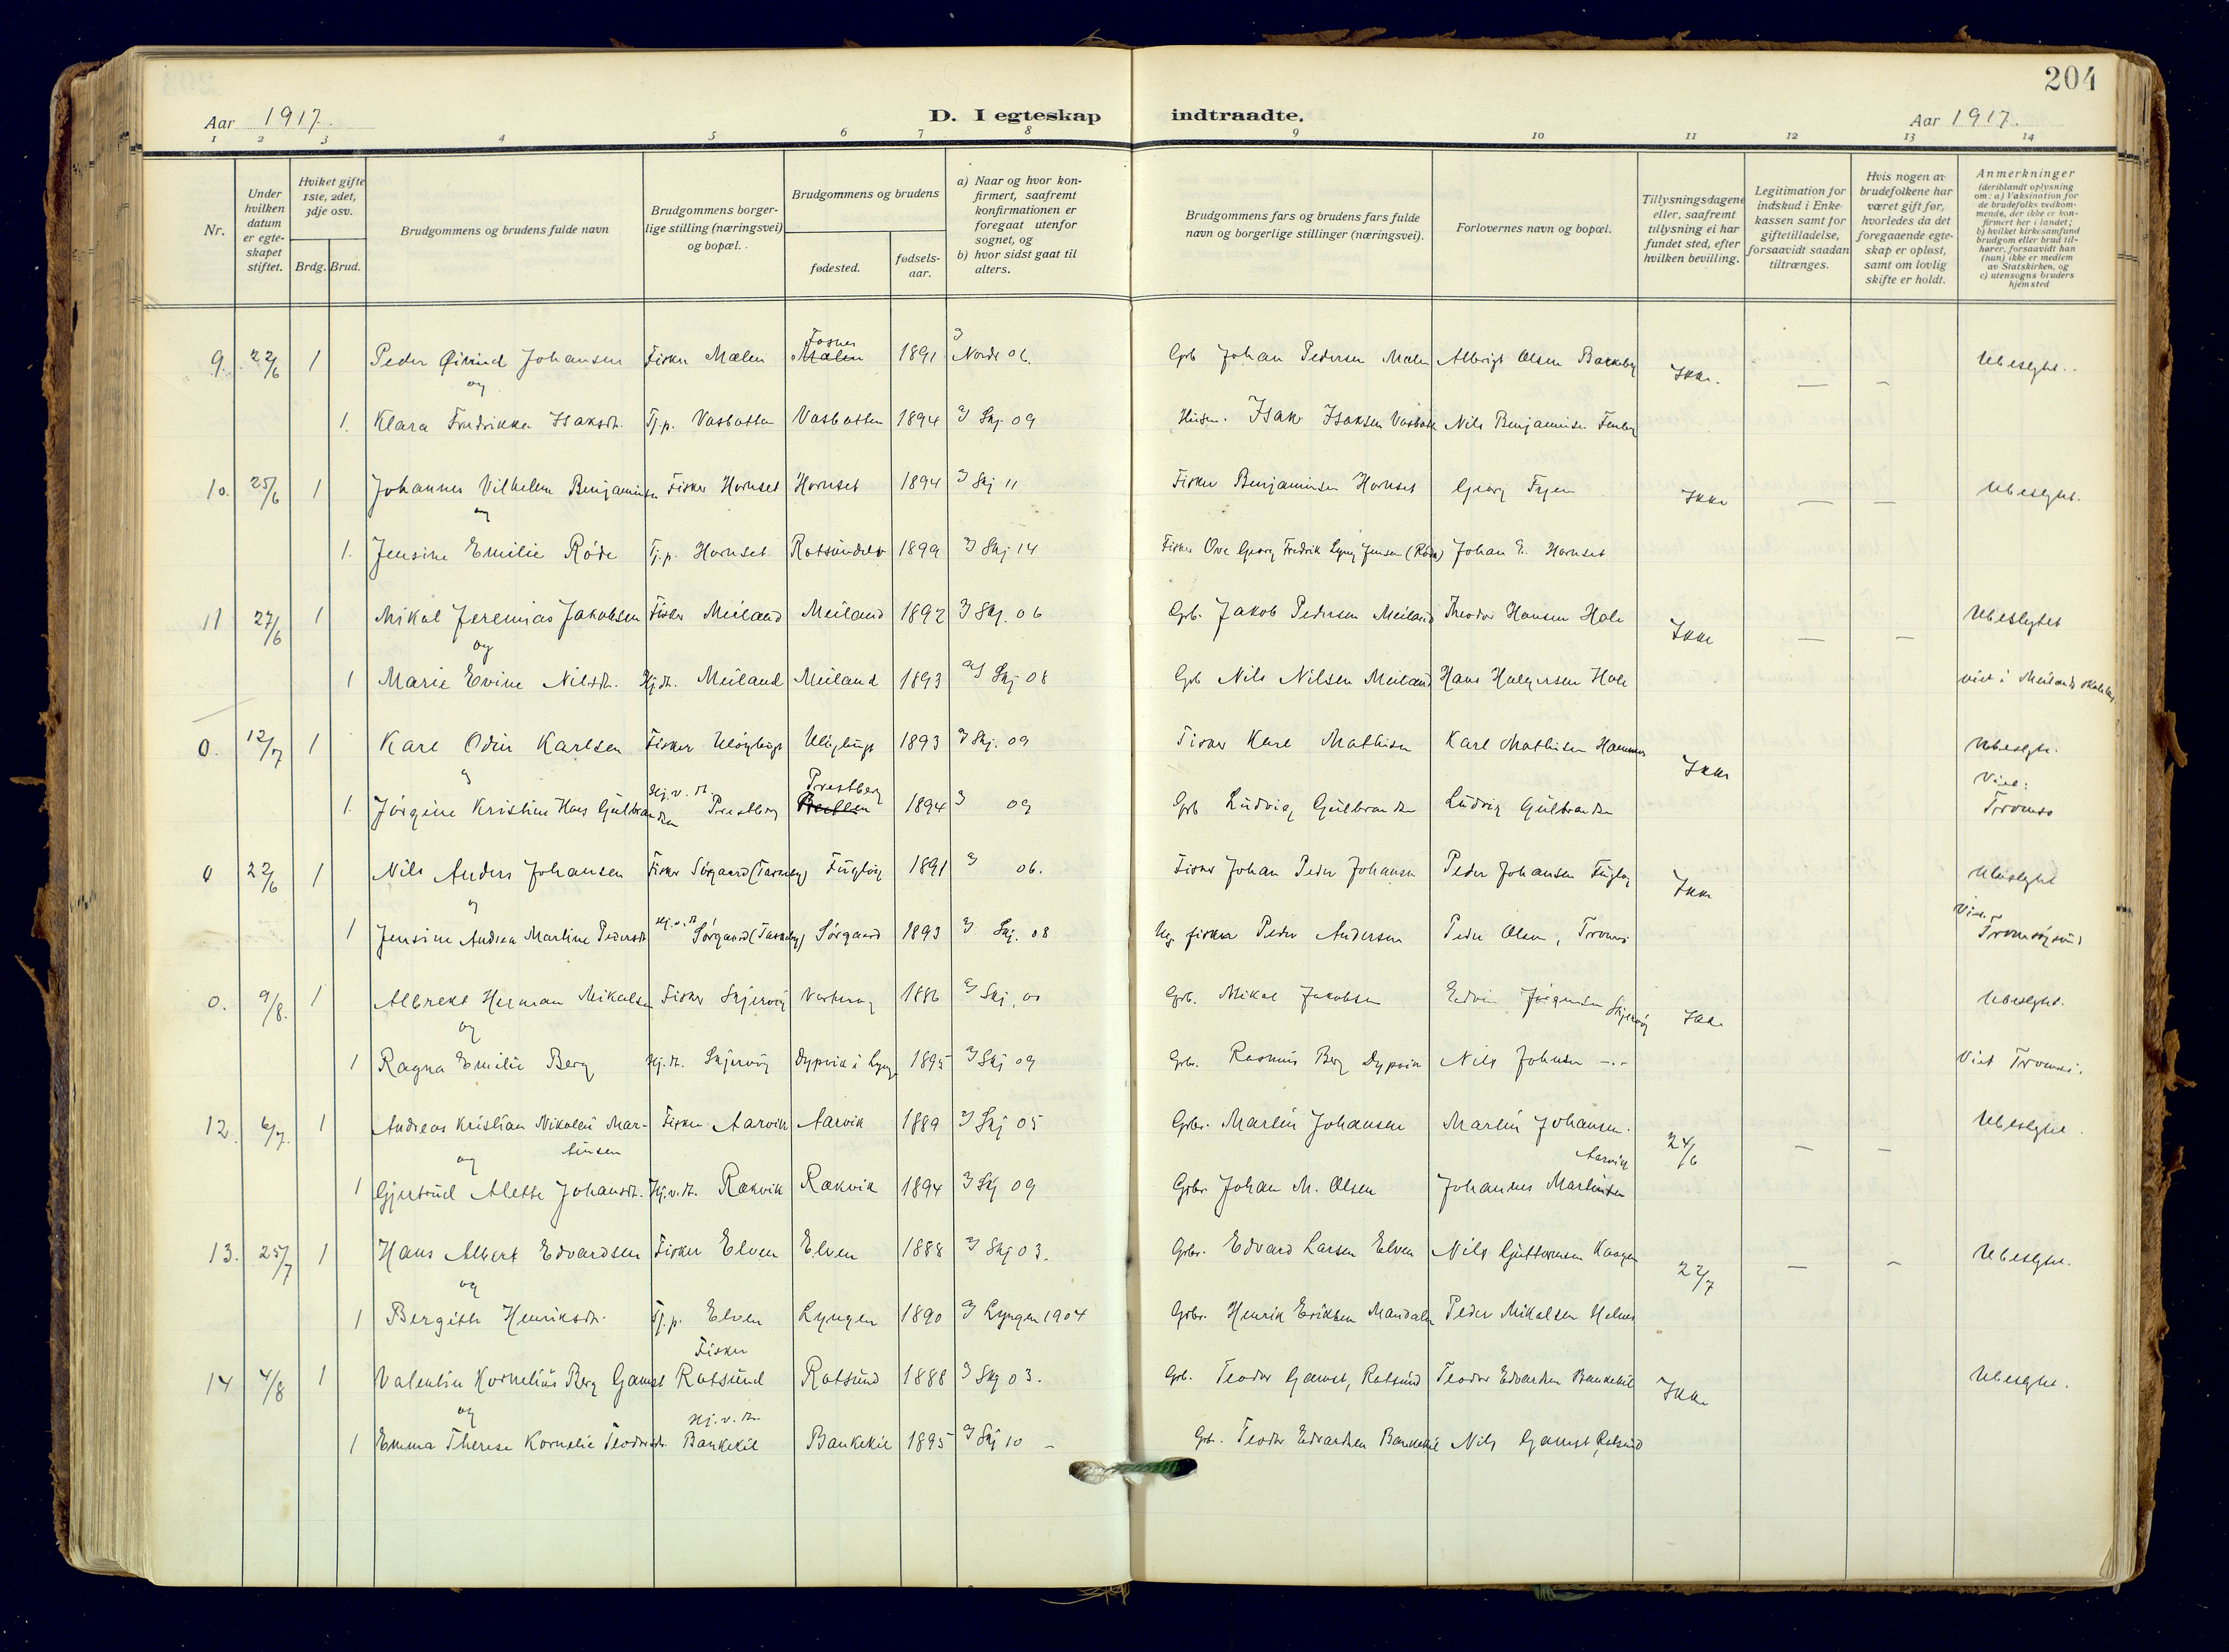 204
Aar 1917.
D. I egteskap indtraadte.
Aar 1917.
1 2 3 4 5 6 7 8 9 10 11 12 13 14
Nr.
Under hvilken datum er egteskapet stiftet.
Hviket gifte 1ste, 2det, 3dje osv.
Brdg. Brud.
Brudgommens og brudens fulde navn
Brudgommens borgerlige stilling (næringsvei) og bopæl.
Brudgommens og brudens
fødested.
fødselsaar.
a) Naar og hvor konfirmert, saafremt konfirmationen er foregaat utenfor sognet, og
b) hvor sidst gaat til alters.
Brudgommens fars og brudens fars fulde navn og borgerlige stillinger (næringsvei).
Forlovernes navn og bopæl.
Tillysningsdagene eller, saafremt tillysning ei har fundet sted, efter hvilken bevilling.
Legitimation for indskud i Enkekassen samt for giftetilladelse, forsaavidt saadan tiltrænges.
Hvis nogen av brudefolkene har været gift før, hvorledes da det foregaaende egteskap er opløst, samt om lovlig skifte er holdt.
Anmerkninger (deriblandt oplysning om: a) Vaksination for de brudefolks vedkommende, der ikke er konfirmert her i landet; b) hvilket kirkesamfund brudgom eller brud tilhører, forsaavidt han (hun) ikke er medlem av Statskirken, og c) utensogns bruders hjemsted
Fosnes
9. 22/6 1 Peder Øivind Johansen Fisker Mælen Mælen 1891 Nords 06. Grb Johan Pedersen Mælen Albrigt Olsen Bakkeby Ikke. — — Ubeslegt.
og
1. Klara Fredrikke Isaksdt. Tj.p. Vasbotten Vasbotten 1894 Skj. 09 Isak Isaksen Nils Benjaminsen
10. 25/6 1 Johannes Vilhelm Benjaminsen Fisker Hornset Hornset 1894 Skj 11 Fisker Benjaminsen Hornset Georg Fyen Ikke — — Ubeslegt.
og
1. Jensine Emilie Røde Tj.p. Hornset Rotsundelv 1899 Skj 14 Fisker Ove Georg Fredrik Lyng Jensen (Røde) Johan E. Hornset
11 27/6 1 Mikal Jeremias Jakobsen Fisker Meiland Meiland 1892 Skj. 06 Grb. Jakob Pedersen Meiland Theodor Hansen Hole Ikke — — Ubeslegtet
og
1 Marie Evine Nilsdt. Hj.dt. Meiland Meiland 1893 Skj 08 Grb Nils Nilsen Meiland Hans Holgersen Hole viet i Meilands skolehus.
0. 12/7 1 Karl Odin Karlsen Fisker 1893 Skj. 09 Fisker Karl Mathisen Karl Mathisen Hammer Ikke Ubeslegt.
Hj.v.dt. Prestberg Viet:
1. Jørgine Kristine Hans Gulbrandsen Prestberg 1894 09 Grb Ludvig Gulbrandsen Ludvig Gulbrandsen Tromsø
0 22/6 1 Nils Anders Johansen Fisker Sørgaard Fugløy 1891 06. Fisker Johan Peder Johansen Peder Johansen Fugløy Ikke Ubeslegt
Hj.v.dt. Viet
1 Jensine Andrea Martine Pedersdt Sørgaard Sørgaard 1893 Skj. 08 fisker Peder Andersen Peder Olsen, Tromsø Tromsøysund
0. 9/8. 1 Albrekt Herman Mikalsen Fisker Skjervøy Vorterøy 1886 Skj. 01 Grb. Mikal Jakobsen Edvin Jørgensen Skjervøy Ikke Ubeslegt.
og
1 Ragna Emilie Berg Hj.dt. Skjervøy Dypvik i Lyngen 1895 Skj 09 Grbr. Rasmus Berg Dypvik Nils Johnsen —.— Viet Tromsø.
12. 6/7. 1 Andreas Kristian Nikolai Martinsen Fisker Aarvik Aarvik 1889 Skj 05 Grbr. Martin Johansen Martin Johansen. Aarvik 24/6 — — Ubeslegt.
og
1 Gjertrud Alette Johansdt. Hj.v.dt. Rakvik Rakvik 1894 Skj 09 Grbr. Johan M. Olsen Johannes Martinsen
13. 25/7 1 Hans Albert Edvardsen Fisker Elven Elven 1888 Skj 03. Grbr. Edvard Larsen Elven Nils Guttormsen Kaagen 22/7 — — Ubeslegt.
og
1 Bergith Henriksdt. Tj.p. Elven Lyngen 1890 Lyngen 1904 Grbr. Henrik Eriksen Mandalen Peder Mikalsen Helnes
Fisker
14 4/8 1 Valentin Kornelius Berg Gamst Rotsund Rotsund 1888 Skj 03. Grb. Teodor Gamst, Rotsund Teodor Edvardsen Bankekil Ikke Ubeslegt.
og Hj.v.dt.
1 Emma Therese Kornelie Teodorsdt. Bankekil Bankekil 1895 Skj 10 — Grb. Teodor Edvardsen Bankekil Nils Gamst Rotsund